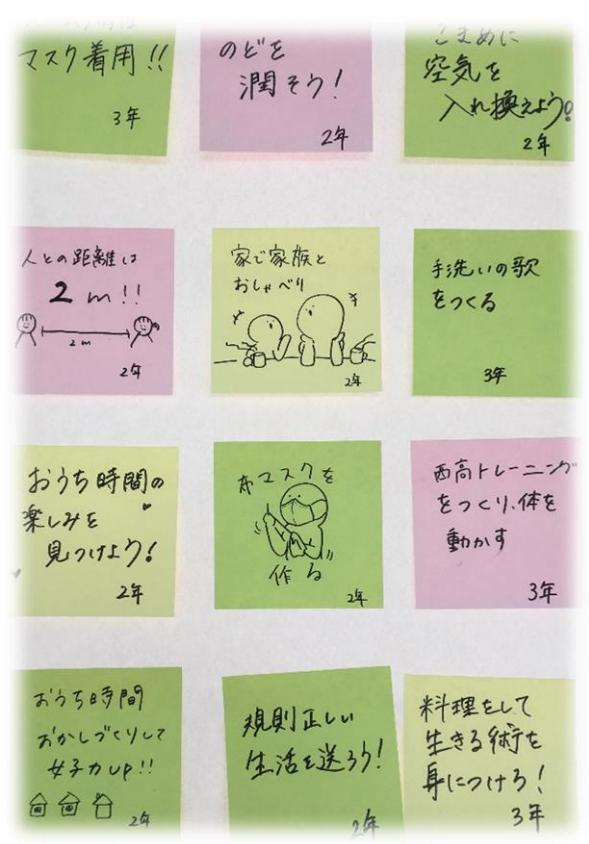 マスク着用!!
3年
のどを
潤そう!
2年
こまめに
空気を
入れ換えよう。
2年
人との距離は
2m!!
2m
2年
家で家族と
おしゃべり
2年
手洗いの歌
をつくる
3年
おうち時間の
楽しみを
見つけよう!
2年
布マスクを
作る
2年
西高トレーニング
をつくり、体を
動かす
3年
おうち時間
おかしづくりして
女子力up!!
2年
規則正しい
生活を送ろう!
2年
料理をして
生きる術を
身につけろ!
3年